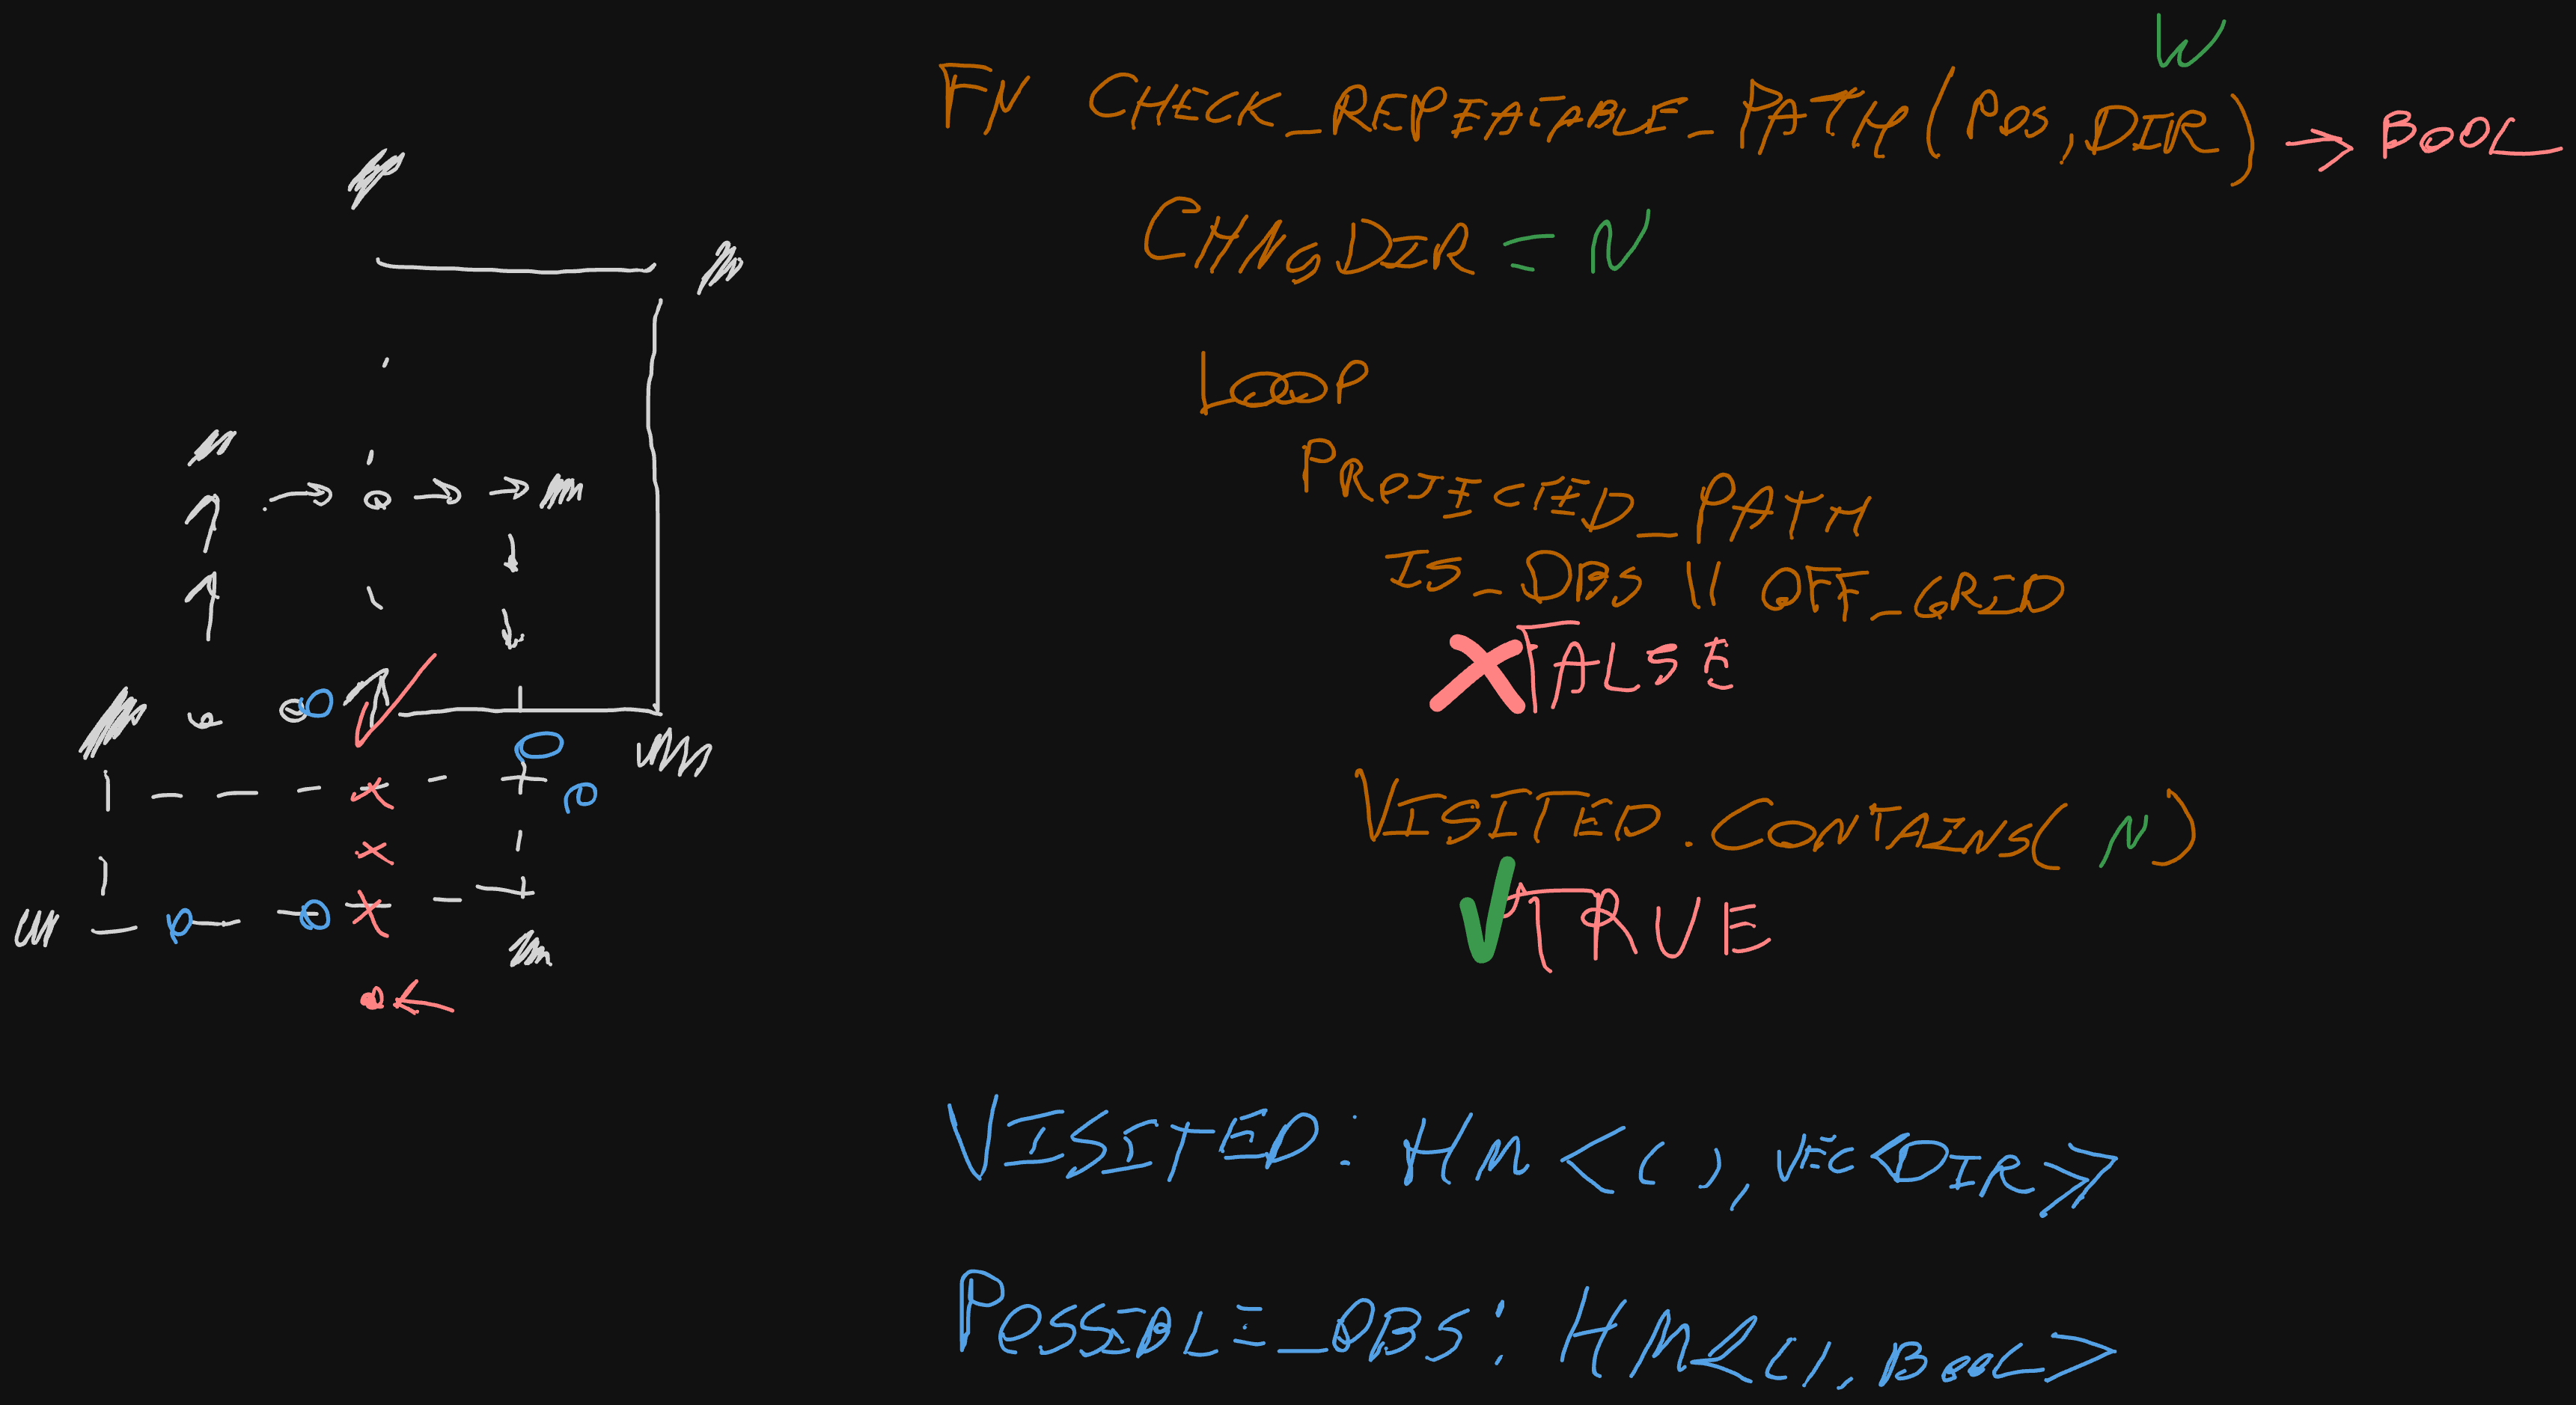 W
FN CHECK_REPEATABLE_PATH(POS,DIR) → BOOL
CHNGDIR = N
LOOP
PROJECTED_PATH
IS_OBS || OFF_GRID
FALSE
VISITED.CONTAINS( N)
TRUE
VISITED: HM<( ), VEC<DIR>>
POSSIBLE_OBS: HM<(), BOOL>